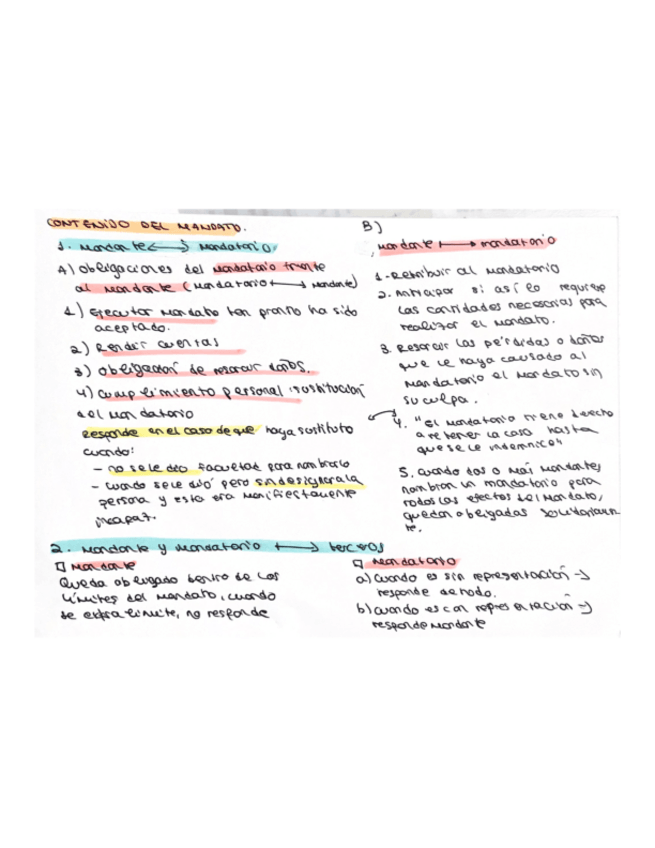 CONTENIDO DEL MANDATO.
1. Mandante <-> Mandatario
A) Obligaciones del Mandatario frente
al Mandante (Mandatario -> Mandante)
1) Ejecutar Mandato ten pronto ha sido
aceptado.
2) Rendir cuentas
3) Obligación de resarcir daños.
4) Cumplimiento personal: sustitución
del Mandatario
Responde en el caso de que haya sustituto
cuando:
- no se le dio facultad para nombrarlo
- cuando se le dió pero sin designar la
persona y esta era manifiestamente
incapaz.
B)
Mandante -> mandatario
1-Retribuir al Mandatario
2. Anticipar si así lo requiere
las cantidades necesarias para
realizar el Mandato.
3. Resarcir las pérdidas o daños
que le haya causado al
Mandatario el Mandato sin
su culpa.
4. "El Mandatario tiene derecho
a retener la cosa hasta
que se le indemnice"
5. cuando dos o más Mandantes
nombran un mandatario para
todos los efectos del Mandato,
quedan obligadas solidariamen
te.
2. Mandante y Mandatario <-> terceros
Mandante
Queda obligado dentro de los
límites del Mandato, cuando
se extralimite, no responde
Mandatario
a) Cuando es sin representación ->
responde de todo.
b) cuando es con representación ->
responde Mandante